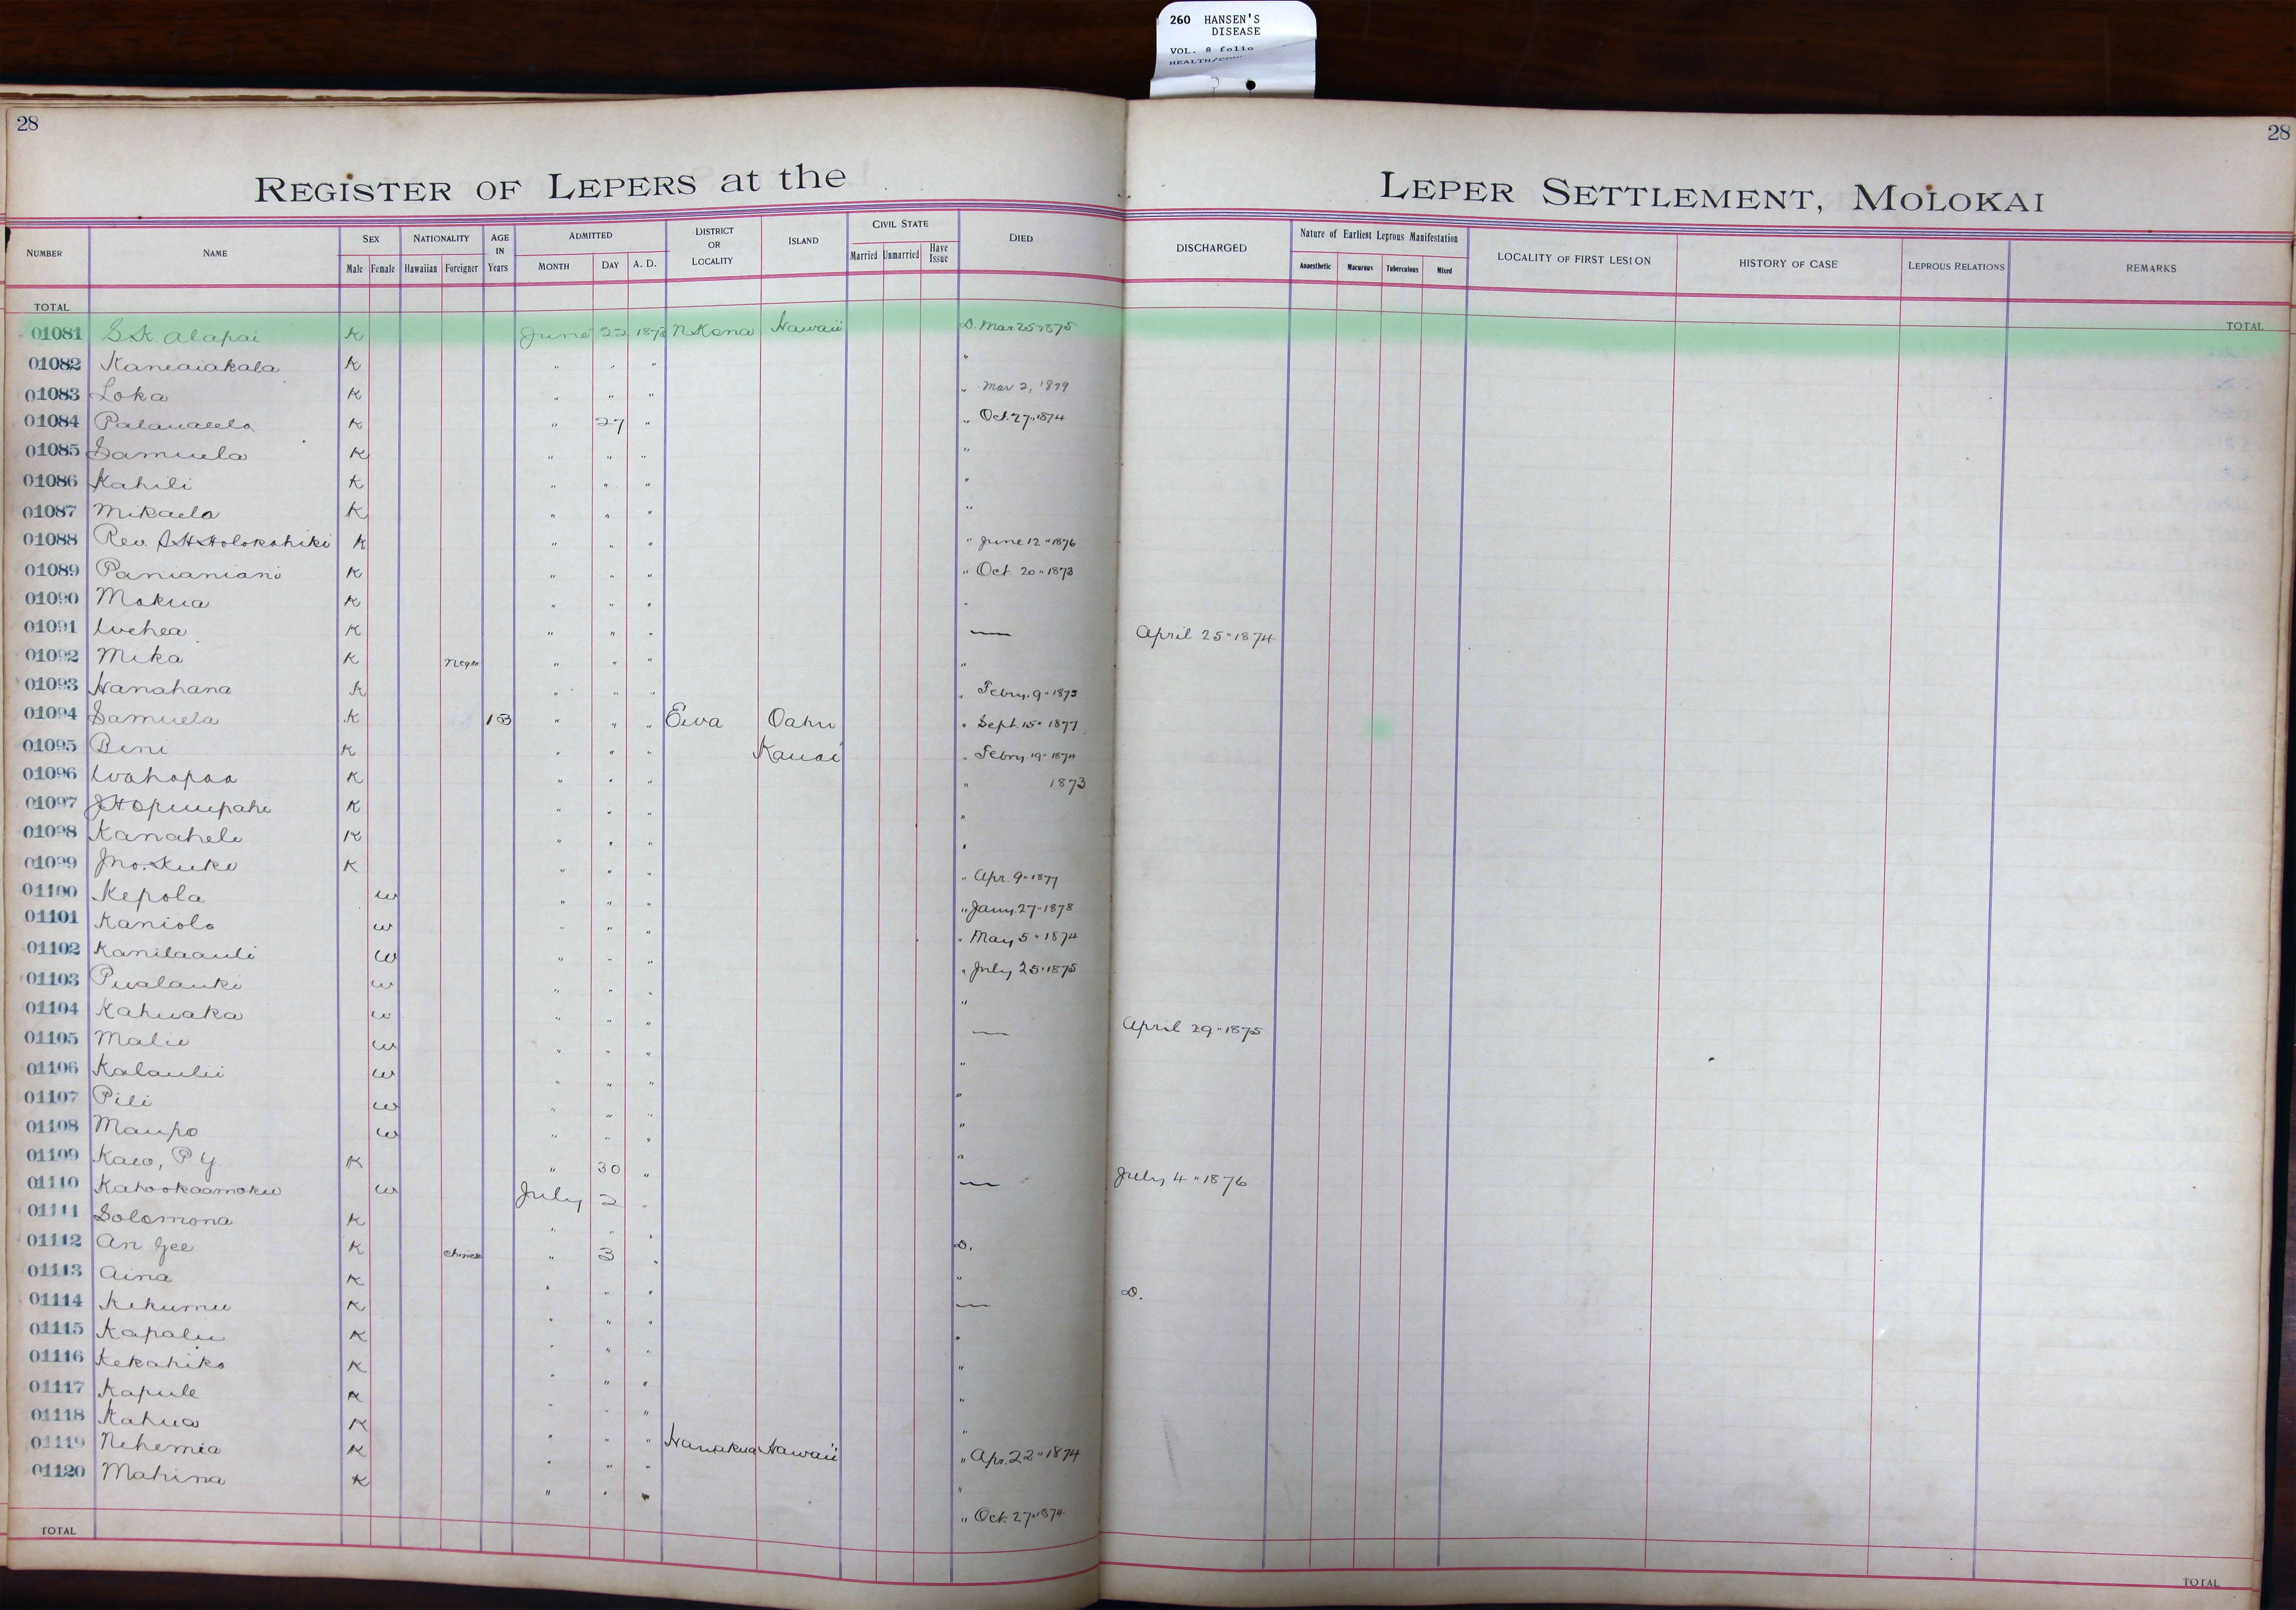 260 HANSEN'S
DISEASE
VOL. 8 folio
28
28
REGISTER OF LEPERS at the LEPER SETTLEMENT, MOLOKAI
NUMBER NAME SEX Male Female NATIONALITY Hawaiian Foreigner AGE IN Years ADMITTED MONTH DAY A. D. DISTRICT OR LOCALITY ISLAND CIVIL STATE Married Unmarried Have Issue DIED DISCHARGED Nature of Earliest Leprous Manifestation Anaesthetic Macurous Tuberculous Mixed LOCALITY OF FIRST LESION HISTORY OF CASE LEPROUS RELATIONS REMARKS
TOTAL TOTAL
01081 S.K. Alapai K June 22 1873 N Kona Hawaii D. Mar. 25 " 1875
01082 Kaneaiakala K " " " "
01083 Loka K " " " " Mar 2, 1879
01084 K " 27 " " Oct. 27 " 1874
01085 Samuela K " " " "
01086 Kahili K " " " "
01087 Mikaela K " " " "
01088 Rev. S H Holokahiki K " " " " June 12 " 1876
01089 Panianiani K " " " " Oct. 20 " 1873
01090 Mokua K " " " "
01091 Wehea K " " " — April 25 " 1874
01092 Mika K Negro " " " "
01093 Hanahana K " " " " Febry. 9 "
01094 Samuela K 13 " " " Ewa Oahu " Sept. 15 " 1877
01095 Beni K " " " Kauai " Febry 19 " 1874
01096 Wahapaa K " " " " 1873
01097 J.H. Opuupahi K " " " "
01098 Kanahele K " " " "
01099 Jno. Kuke K " " " " Apr. 9 " 1877
01100 Kepola W " " " " Jany. 27 " 1878
01101 Kaniolo W " " " " May 5 " 1874
01102 Kanilaauli W " " " " July 25 " 1875
01103 Pualauki W " " " "
01104 Kahuaka W " " " — April 29 " 1875
01105 Malie W " " " "
01106 Kalaulii W " " " "
01107 Pili W " " " "
01108 Maupo W " " " "
01109 Kaeo, P Y K " 30 " — July 4 " 1876
01110 Kahookaamoku W July 2 "
01111 Solomona K " " " D.
01112 An Gee K Chinese " 3 " "
01113 Aina K " " " — D.
01114 Kekumu K " " " "
01115 Kapalu K " " " "
01116 Kekahiko K " " " "
01117 Kapule K " " " "
01118 Kahua K " " " Hamakua Hawaii " Apr. 22 " 1874
01119 Nehemia K " " " "
01120 Mahina K " " " " Oct. 27 " 1874
TOTAL TOTAL